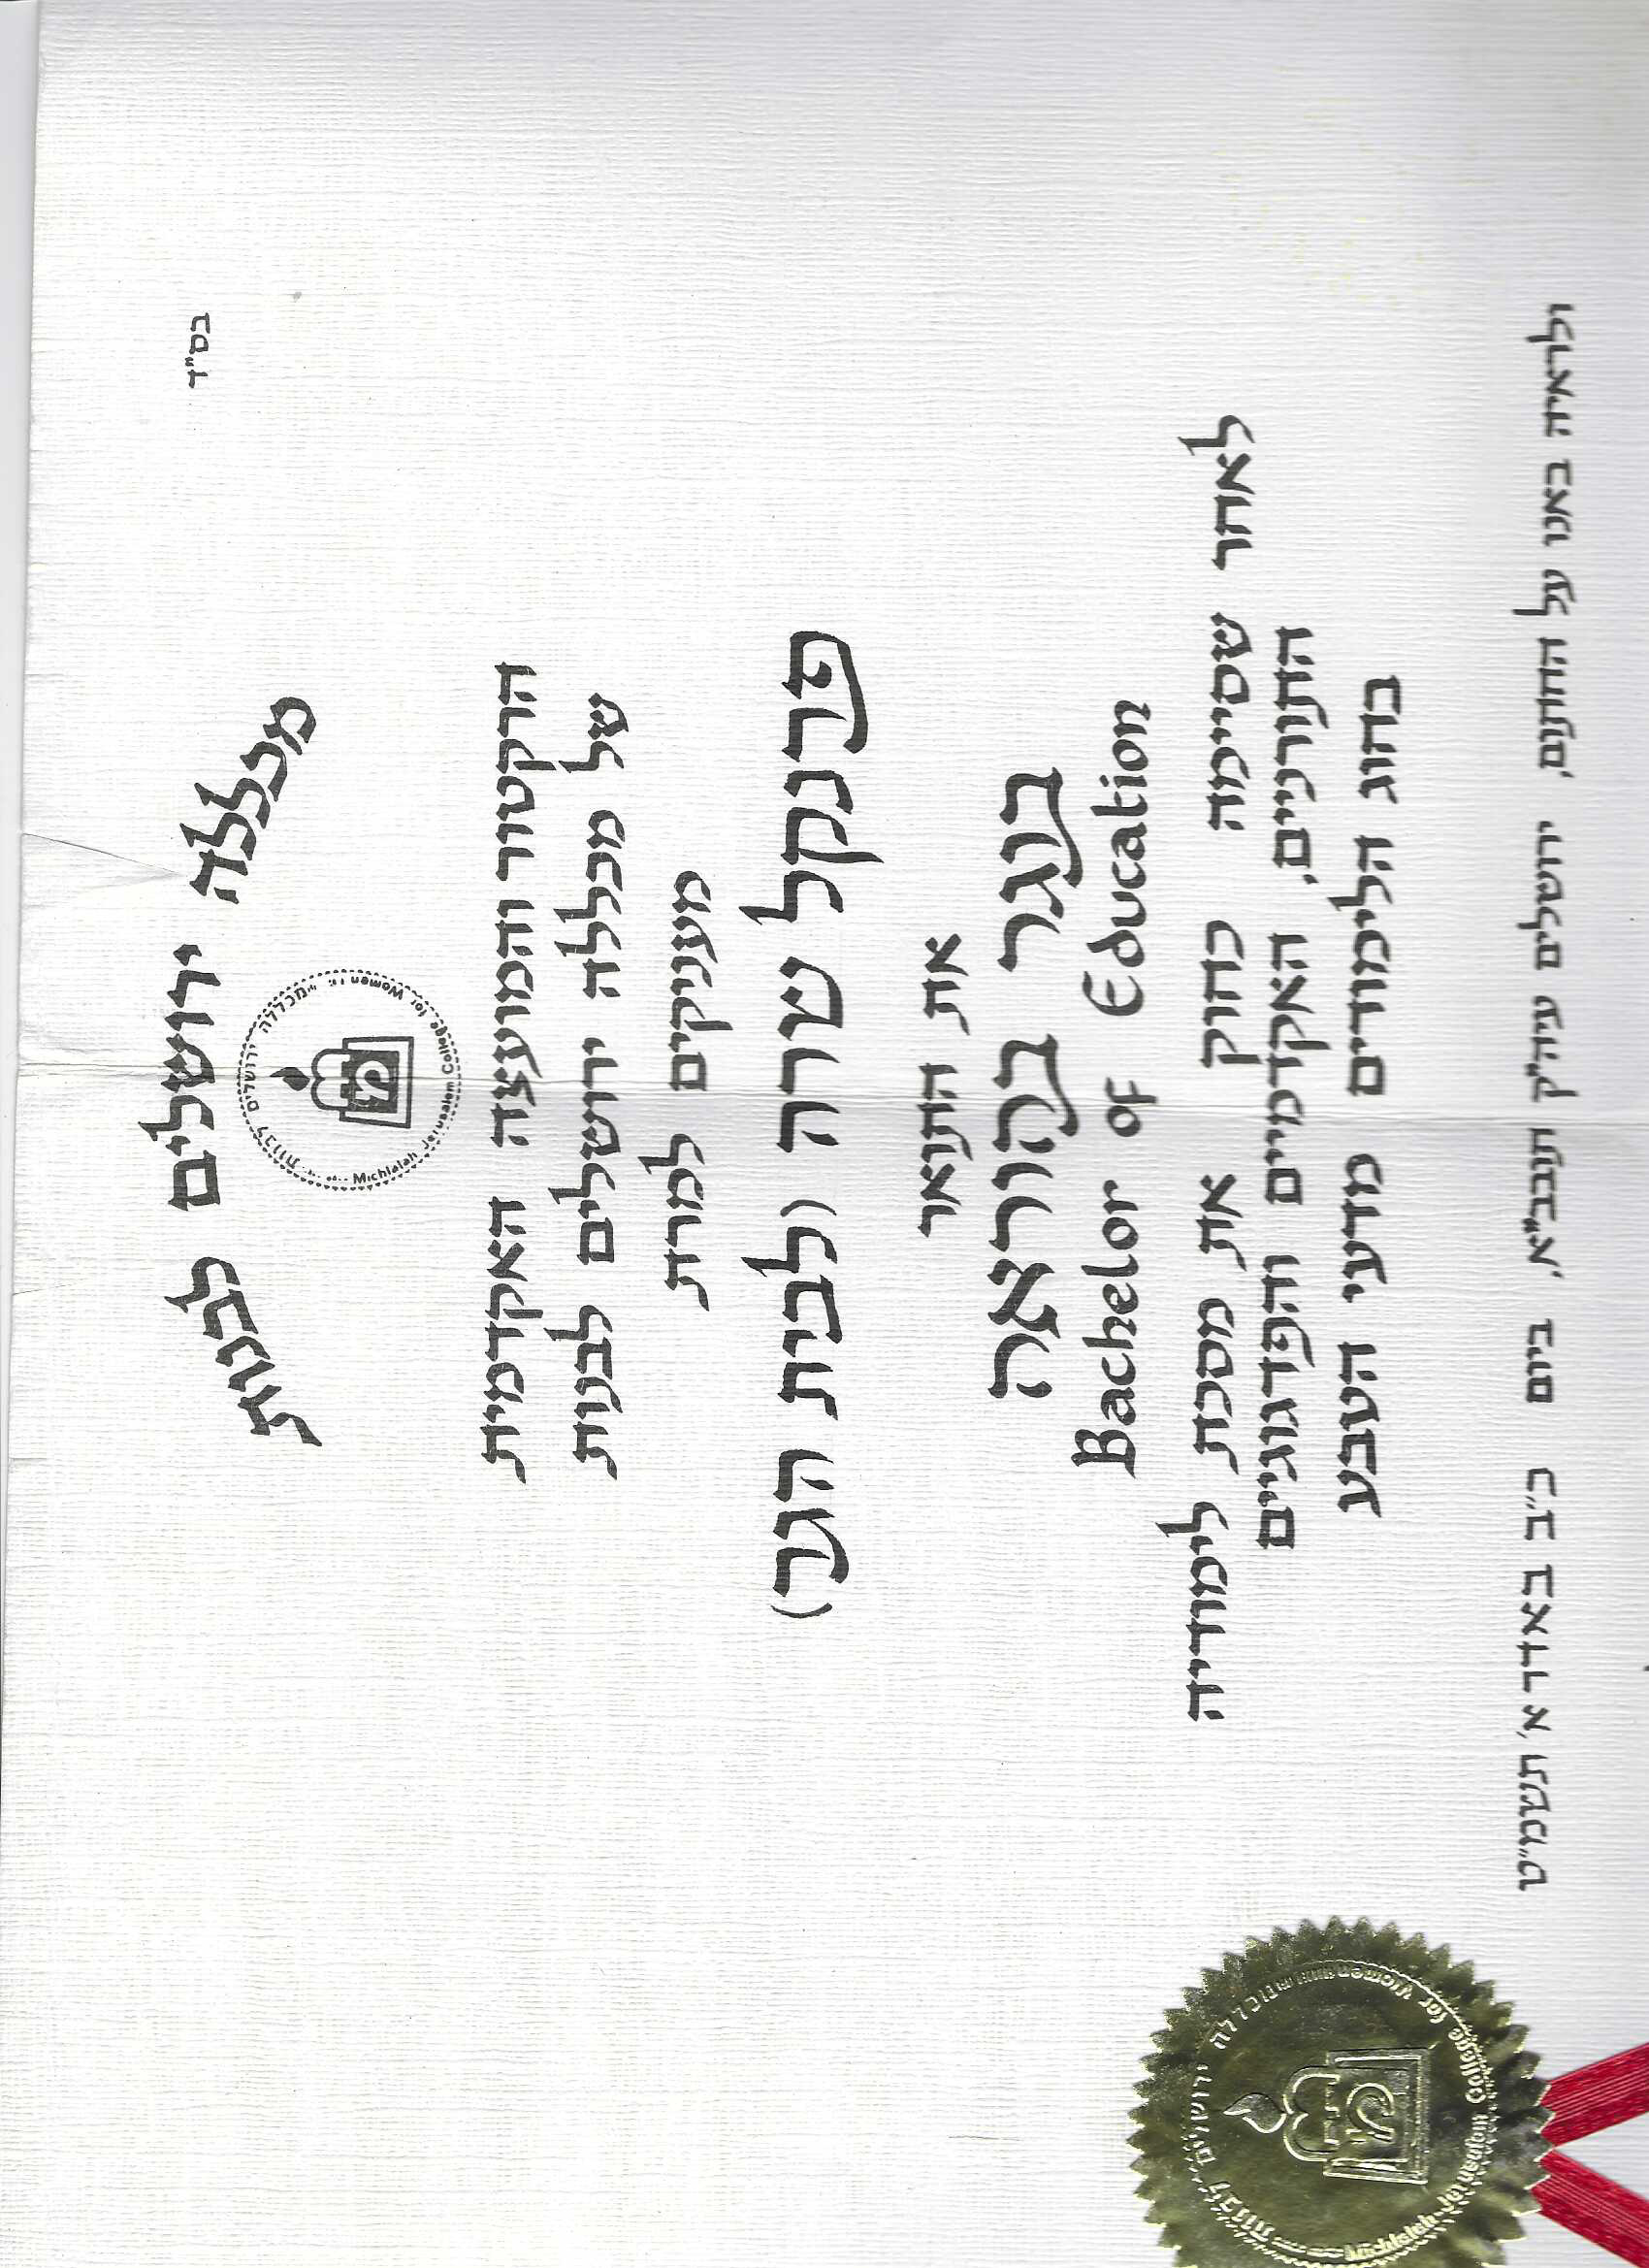 בס"ד
מכללה ירושלים לבנות
מכללה ירושלים לבנות Michlalah Jerusalem College for Women
הרקטור והמועצה האקדמית
של מכללה ירושלים לבנות
מעניקים למרת
פרנקל שרה (לבית הגר)
את התואר
בוגר בהוראה
Bachelor of Education
לאחר שסיימה כחוק את מסכת לימודיה
התורניים, האקדמיים והפדגוגיים
בחוג הלימודים מדעי הטבע
ולראיה באנו על החתום, ירושלים עיה"ק תובב"א, ביום כ"ב באדר א' תשמ"ט
מכללה ירושלים לבנות Michlalah-Jerusalem College for Women